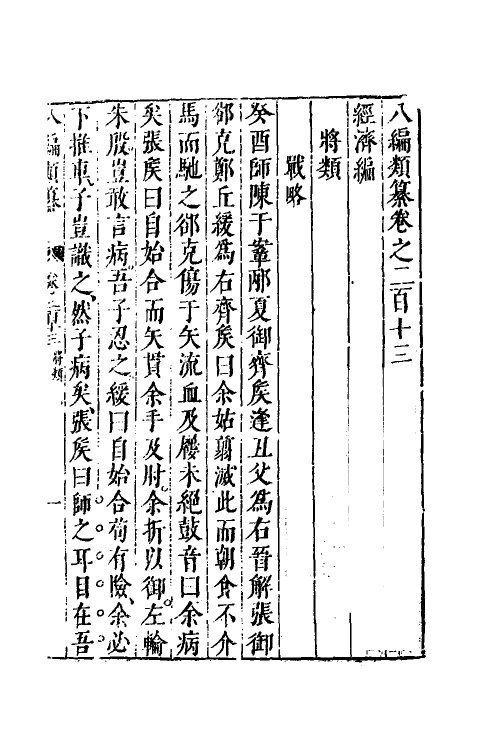 八編類纂卷之二百十三
經濟編
將類
戰略
癸酉師陳于鞌邴夏御齊矦逢丑父爲右晉解張御
郤克鄭丘緩爲右齊矦曰余姑翦滅此而朝食不介
馬而馳之郤克傷于矢流血及屨未絕鼓音曰余病
矣張矦曰自始合而矢貫余手及肘余折以御左輪
朱殷豈敢言病吾子忍之緩曰自始合苟有險余必
下推車子豈識之然子病矣張矦曰師之耳目在吾
八編類纂 卷之二百十三 將類 一